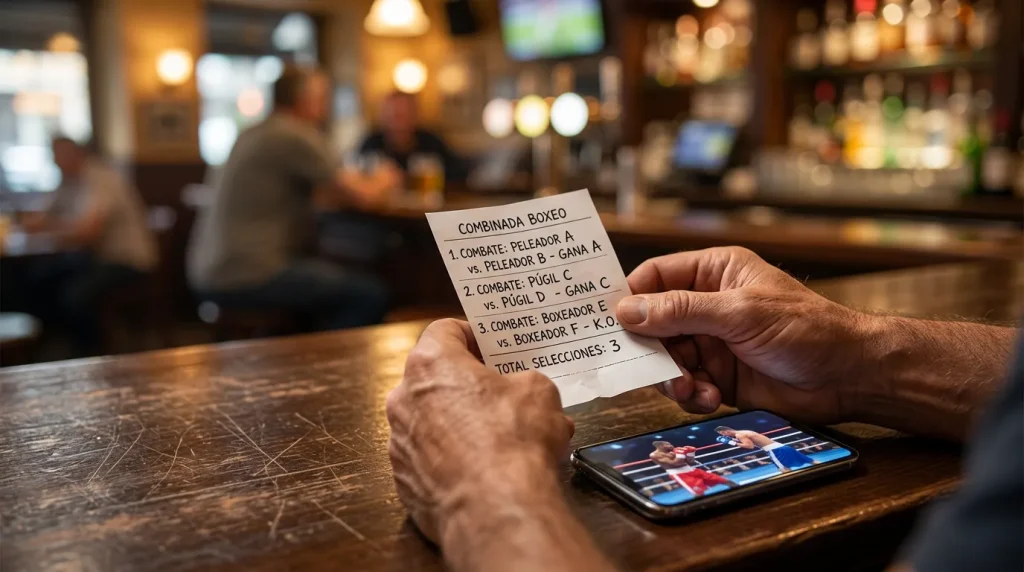 COMBINADA BOXEO
1. COMBATE: PELEADOR A
vs. PELEADOR B - GANA A
2. COMBATE: PÚGIL C
vs. PÚGIL D - GANA C
3. COMBATE: BOXEADOR E
vs. BOXEADOR F - K.O.
TOTAL SELECCIONES: 3